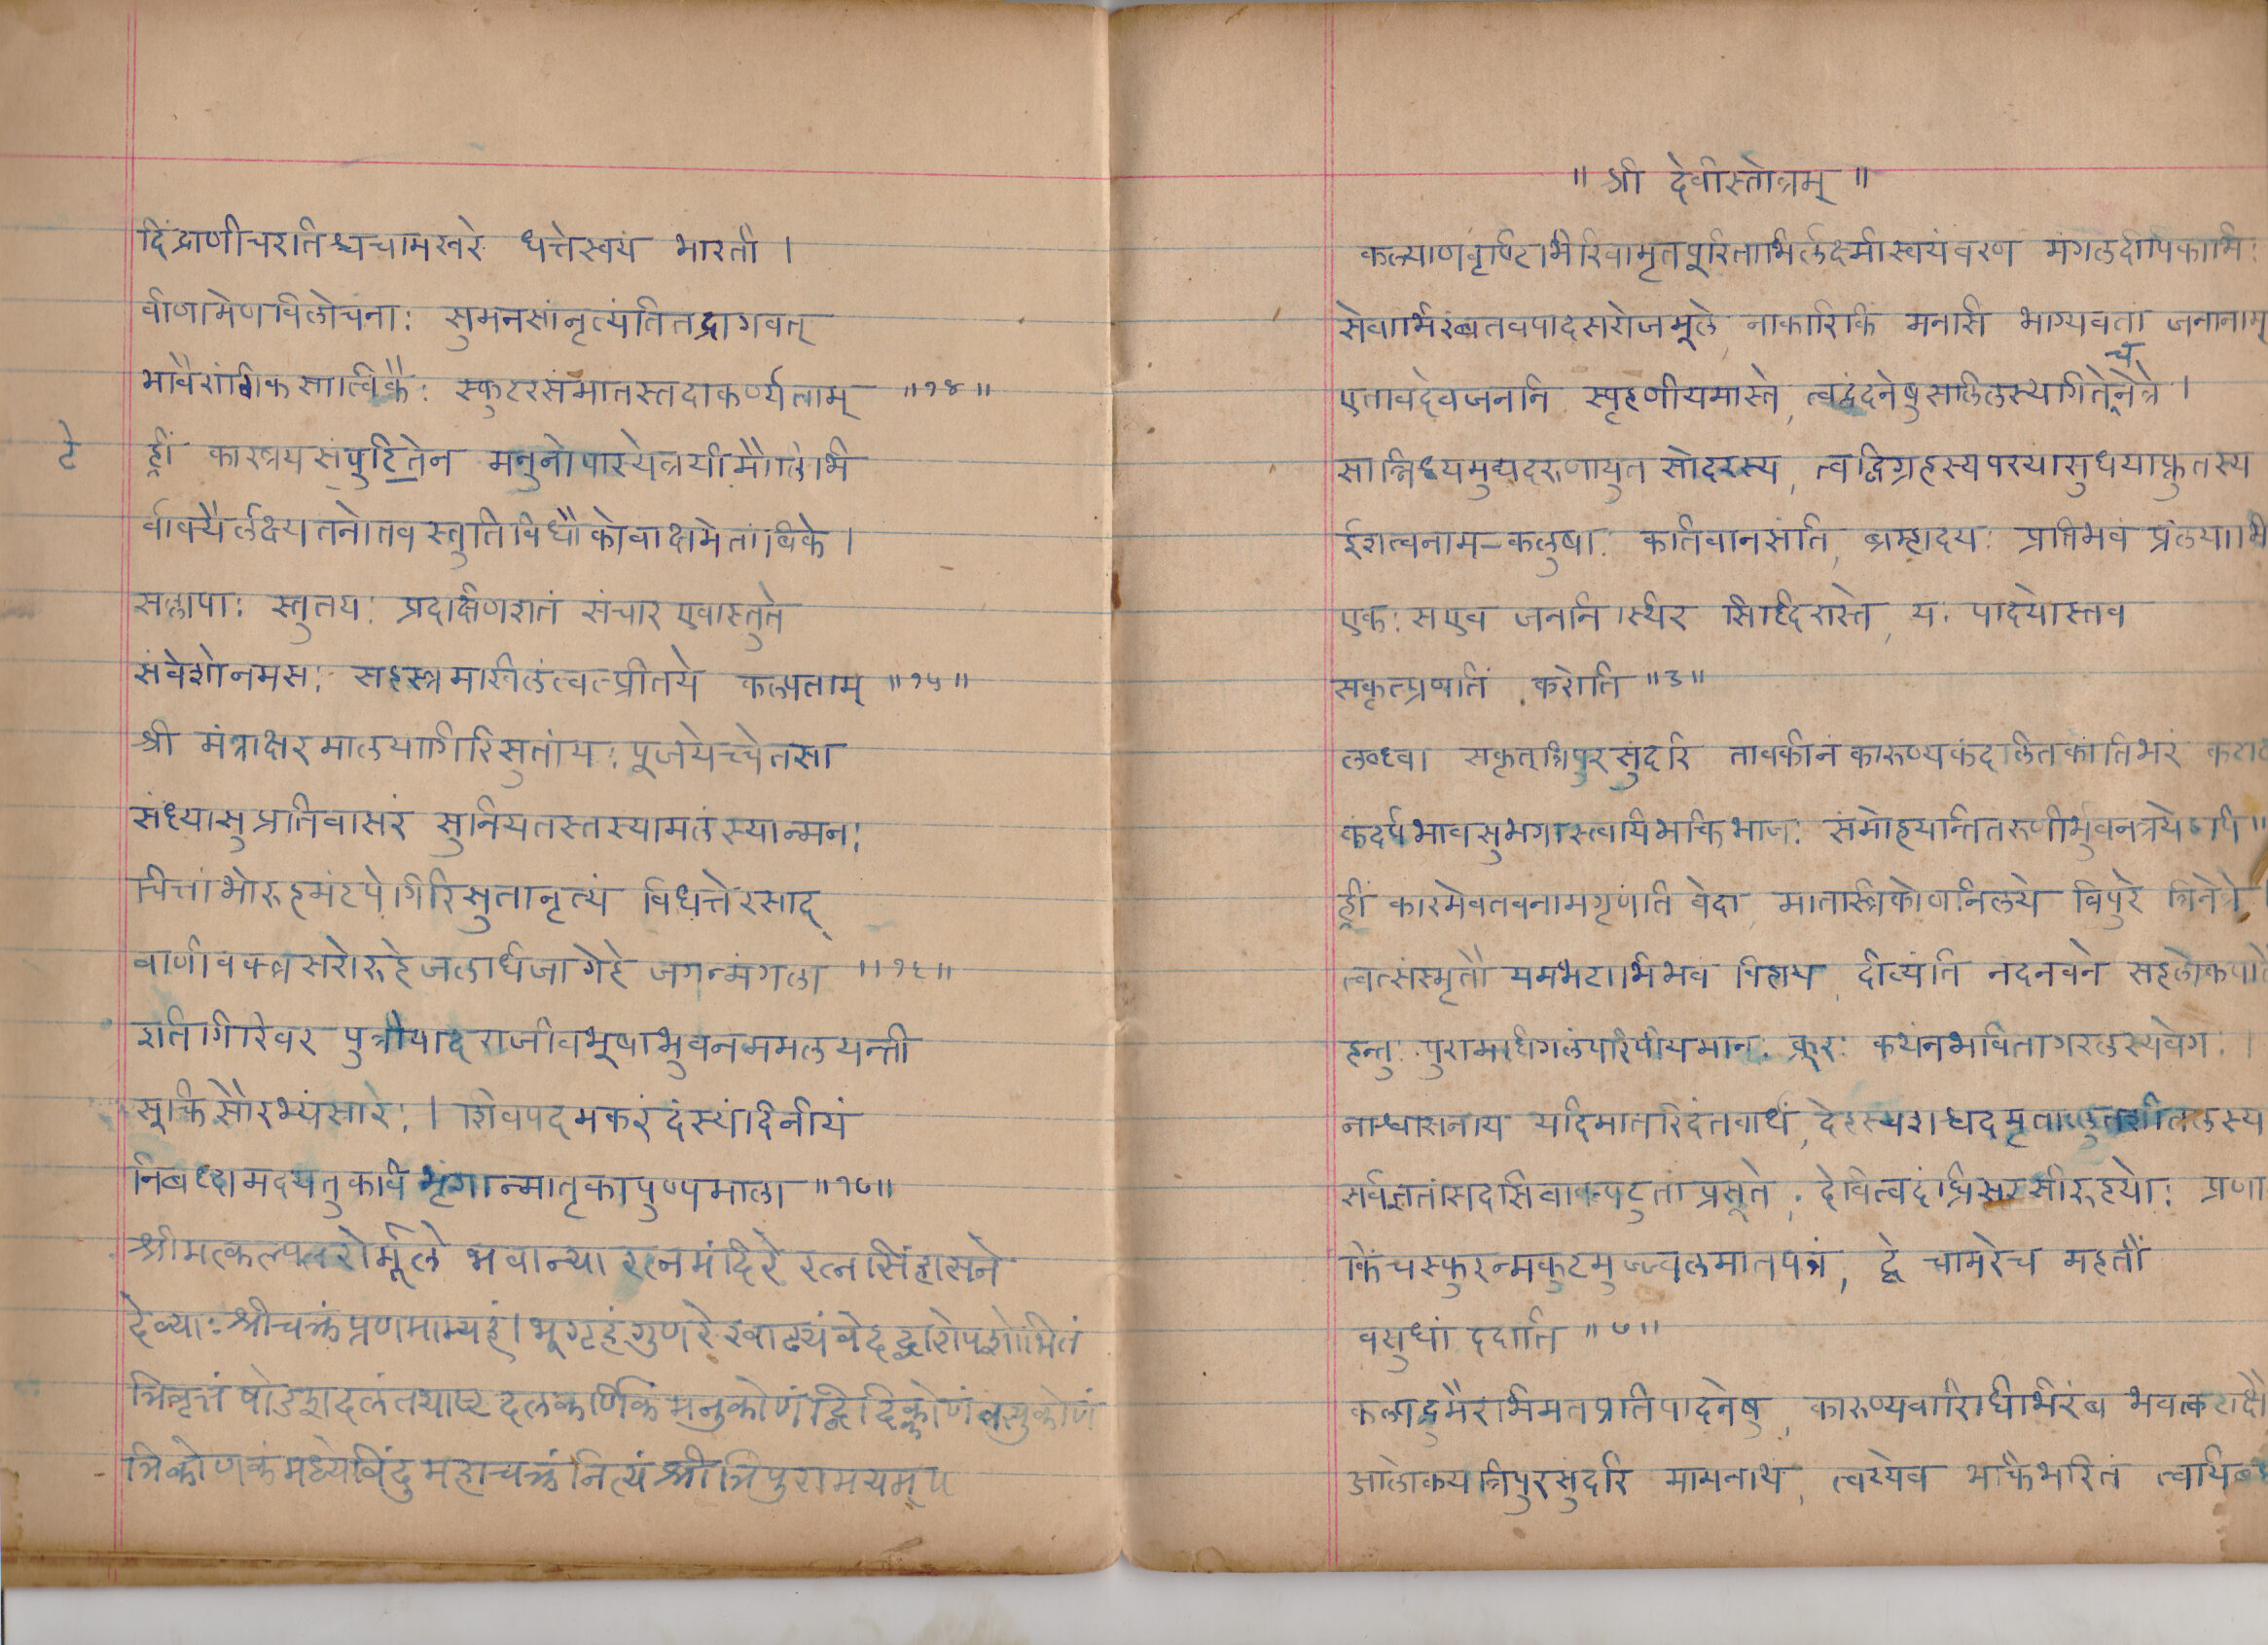 दिंद्राणीचरतिश्चचामरवरे धत्तेस्वयं भारती ।
र्वीणामेणविलोचनाः सुमनसांनृत्यंतितद्रागवत्
भावैरांगिकसात्विकैः स्फुटरसंमातस्तदाकर्ण्यताम् ॥१४॥
टे ह्रीं कारत्रयसंपुटितेन मनुनोपास्येत्रयीमौलिभि
र्वाक्यैर्लक्ष्यतनोतव स्तुतिविधौकोवाक्षमेतांबिके ।
सल्लापाः स्तुतयः प्रदक्षिणशतं संचार एवास्तुते
संवेशोनमसः सहस्त्रमखिलंत्वत्प्रीतये कल्पताम् ॥१५॥
श्री मंत्राक्षरमालयागिरिसुतांयः पूजयेच्चेतसा
संध्यासुप्रतिवासरं सुनियतस्तस्यामलंस्यान्मनः
चित्तांभोरुहमंटपेगिरिसुतानृत्यं विधत्तेरसाद्
वाणीवक्त्रसरोरुहेजलधिजागेहे जगन्मंगला ॥१६॥
इतिगिरिवर पुत्रीपाद राजीवभूषाभुवनममलयन्ती
सूक्तिसौरभ्यंसारैः । शिवपदमकरंदंस्यंदिनीयं
निबध्दामदयतुकविभृंगान्मातृकापुष्पमाला ॥१७॥
श्रीमत्कल्पतरोर्मूले भवान्या रत्नमंदिरे रत्नसिंहासने
देव्याः श्रीचक्रंप्रणमाम्यहं। भूगृहंगुणरेखाढ्यंवेदद्वारोपशोभितं
त्रिवृत्तं षोडशदलंतथाष्टदलकर्णिकं मनुकोणंद्विदिक्कोणंवसुकोणं
त्रिकोणकंमध्येबिंदुमहाचक्रंनित्यंश्रीत्रिपुरामयम्॥
॥ श्री देवीस्तोत्रम् ॥
कल्याणवृष्टिभिरिवामृतपूरिताभिर्लक्ष्मीस्वयंवरण मंगलदीपिकाभिः
सेवाभिरंबतवपादसरोजमूले नाकारिकिं मनसि भाग्यवतां जनानाम्
एतावदेवजननि स्पृहणीयमास्ते, त्वद्वंदनेषुसलिलस्थगितेचनेत्रे ।
सान्निध्यमुद्यदरुणायुत सोदरस्य, त्वद्विग्रहस्यपरयासुधयाप्लुतस्य
ईशत्वनाम-कलुषाः कतिवानसंति, ब्रम्हादयः प्रतिभवं प्रलयाभि
एकः सएव जननि स्थिर सिद्दिरास्ते, यः पादयोस्तव
सकृत्प्रणतिं करोति ॥३॥
लब्ध्वा सकृत्त्रिपुरसुंदरि तावकीनं कारुण्यकंदलितकांतिभरं
कंदर्पभावसुभगास्त्वयिभक्तिभाजः संमोहयन्तितरुणीर्भुवनत्रयेऽपि॥
ह्रीं कारमेवतवनामगृणंति वेदा मातस्त्रिकोणनिलये त्रिपुरे त्रिनेत्रे।
त्वत्संस्मृतौ यमभटाभिभवं विहाय, दीव्यंति नंदनवने सहलोकपा
हन्तुः पुरामधिगलंपरिपीयमानः क्रूरः कथंनभवितागरलस्यवेगः ।
नाश्वासनाय यदिमातरिदंतवार्धं, देहस्यशश्वदमृताप्लुतशीतलस्य
सर्वज्ञतांसदसिवाक्पटुतां प्रसूते, देवित्वदंघ्रिसरसीरुहयोः प्रणा
किंचस्फुरन्मकुटमुज्ज्वलमातपत्रं, द्वे चामरेच महतीं
वसुधां ददाति ॥७॥
कल्पद्रुमैरभिमतप्रतिपादनेषु, कारुण्यवारिधिभिरंब भवत्कटाक्षै
आलोकयत्रिपुरसुंदरि मामनाथं, त्वय्येव भक्तिभरितं